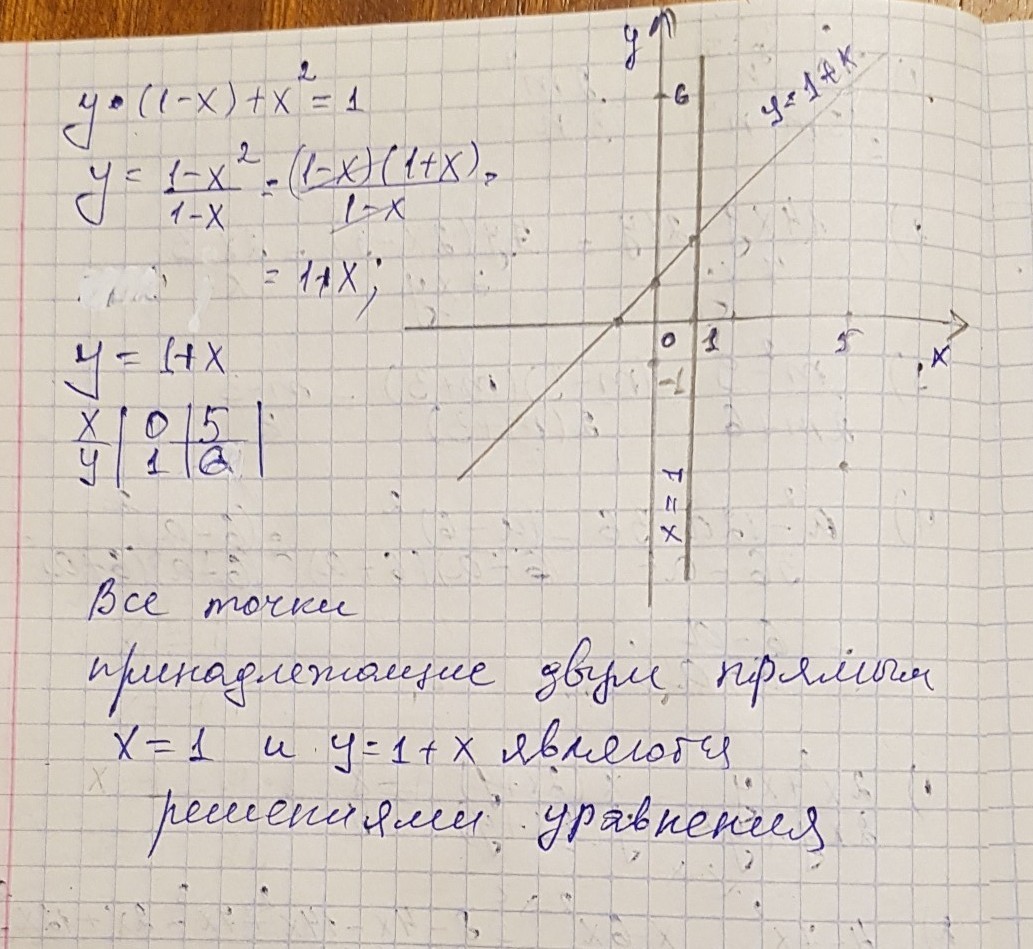 y·(1-x)+x²=1
y = (1-x²)/(1-x) = ((1-x)(1+x))/(1-x) =
= 1+x;
y = 1+x
x | 0 | 5 |
y | 1 | 6 |
y
6
y=1+x
0 1 5
x
-1
x=1
Все точки
принадлежащие двум прямым
x=1 и y=1+x являются
решениями уравнения